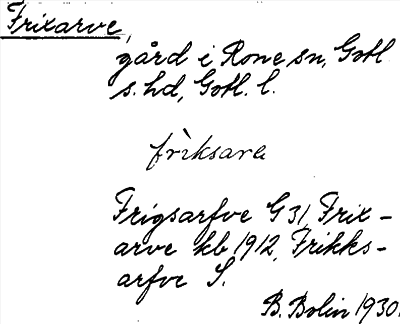 Frixarve,
gård i Rone sn, Gotl
s. hd, Gotl. l.
frìksarα
Frigsarfve G 31, Frix-
arve kb 1912, Frikks-
arfve S.
B. Bolin 1930.